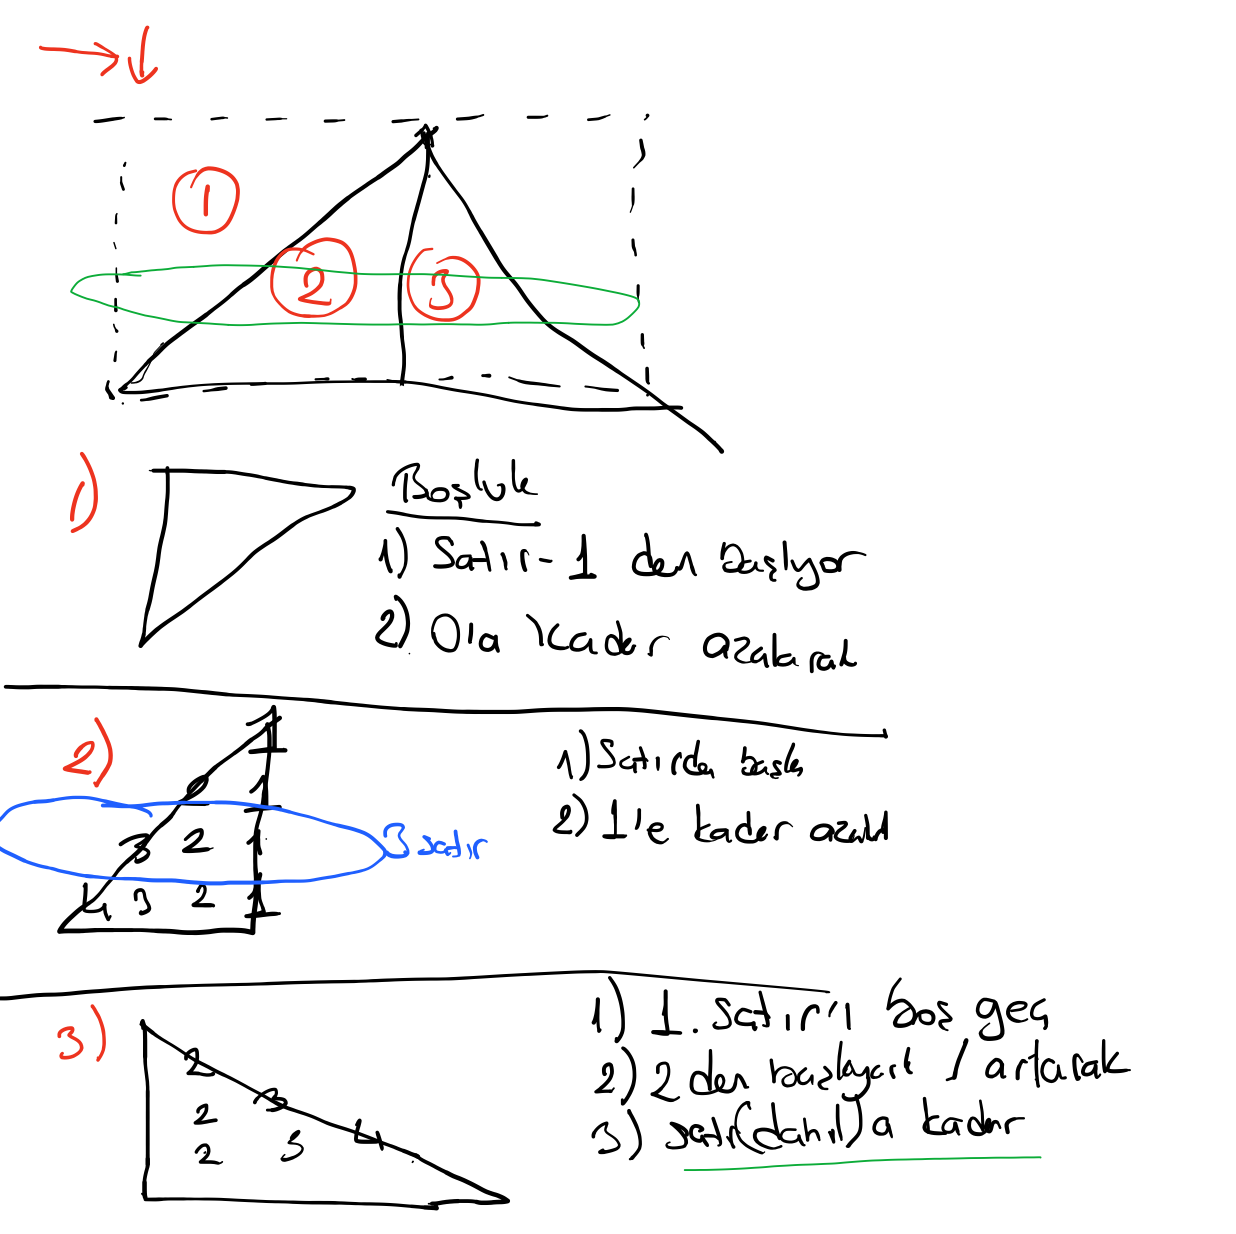 1
2
3
1)
Boşluk
1) Satır-1 den başlıyor
2) 0'a kadar azalarak
2)
1
2 1
3 2 1
4 3 2 1
3 satır
1) Satırdan başla
2) 1'e kadar azalt
3)
2
2 3
2 3 4
1) 1. satır'ı boş geç
2) 2 den başlayarak / artarak
3) satır(dahil)a kadar